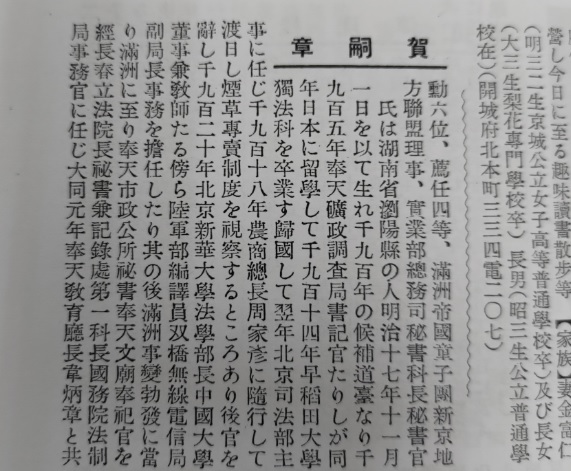 營し今日に至る趣味讀書散步等【家族】妻金富仁
(明三二生京城公立女子高等普通學校卒)及び長女
(大三生梨花專門學校卒)長男(昭三生公立普通學
校在)(開城府北本町三三四電二〇七)
賀嗣章
勳六位、薦任四等、滿洲帝國童子團新京地
方聯盟理事、實業部總務司秘書科長秘書官
氏は湖南省瀏陽縣の人明治十七年十一月
一日を以て生れ千九百年の候補道臺なり千
九百五年奉天礦政調査局書記官たりしが同
年日本に留學して千九百十四年早稻田大學
獨法科を卒業す歸國して翌年北京司法部主
事に任じ千九百十八年農商總長周家彥に隨行して
渡日し煙草專賣制度を視察するところあり後官を
辭し千九百二十年北京新華大學法學部長中國大學
董事兼敎師たる傍ら陸軍部編譯員双橋無線電信局
副局長事務を擔任したり其の後滿洲事變勃發に當
り滿洲に至り奉天市政公所祕書奉天文廟奉祀官を
經長春立法院長祕書兼記錄處第一科長國務院法制
局事務官に任じ大同元年奉天敎育廳長韋炳章と共